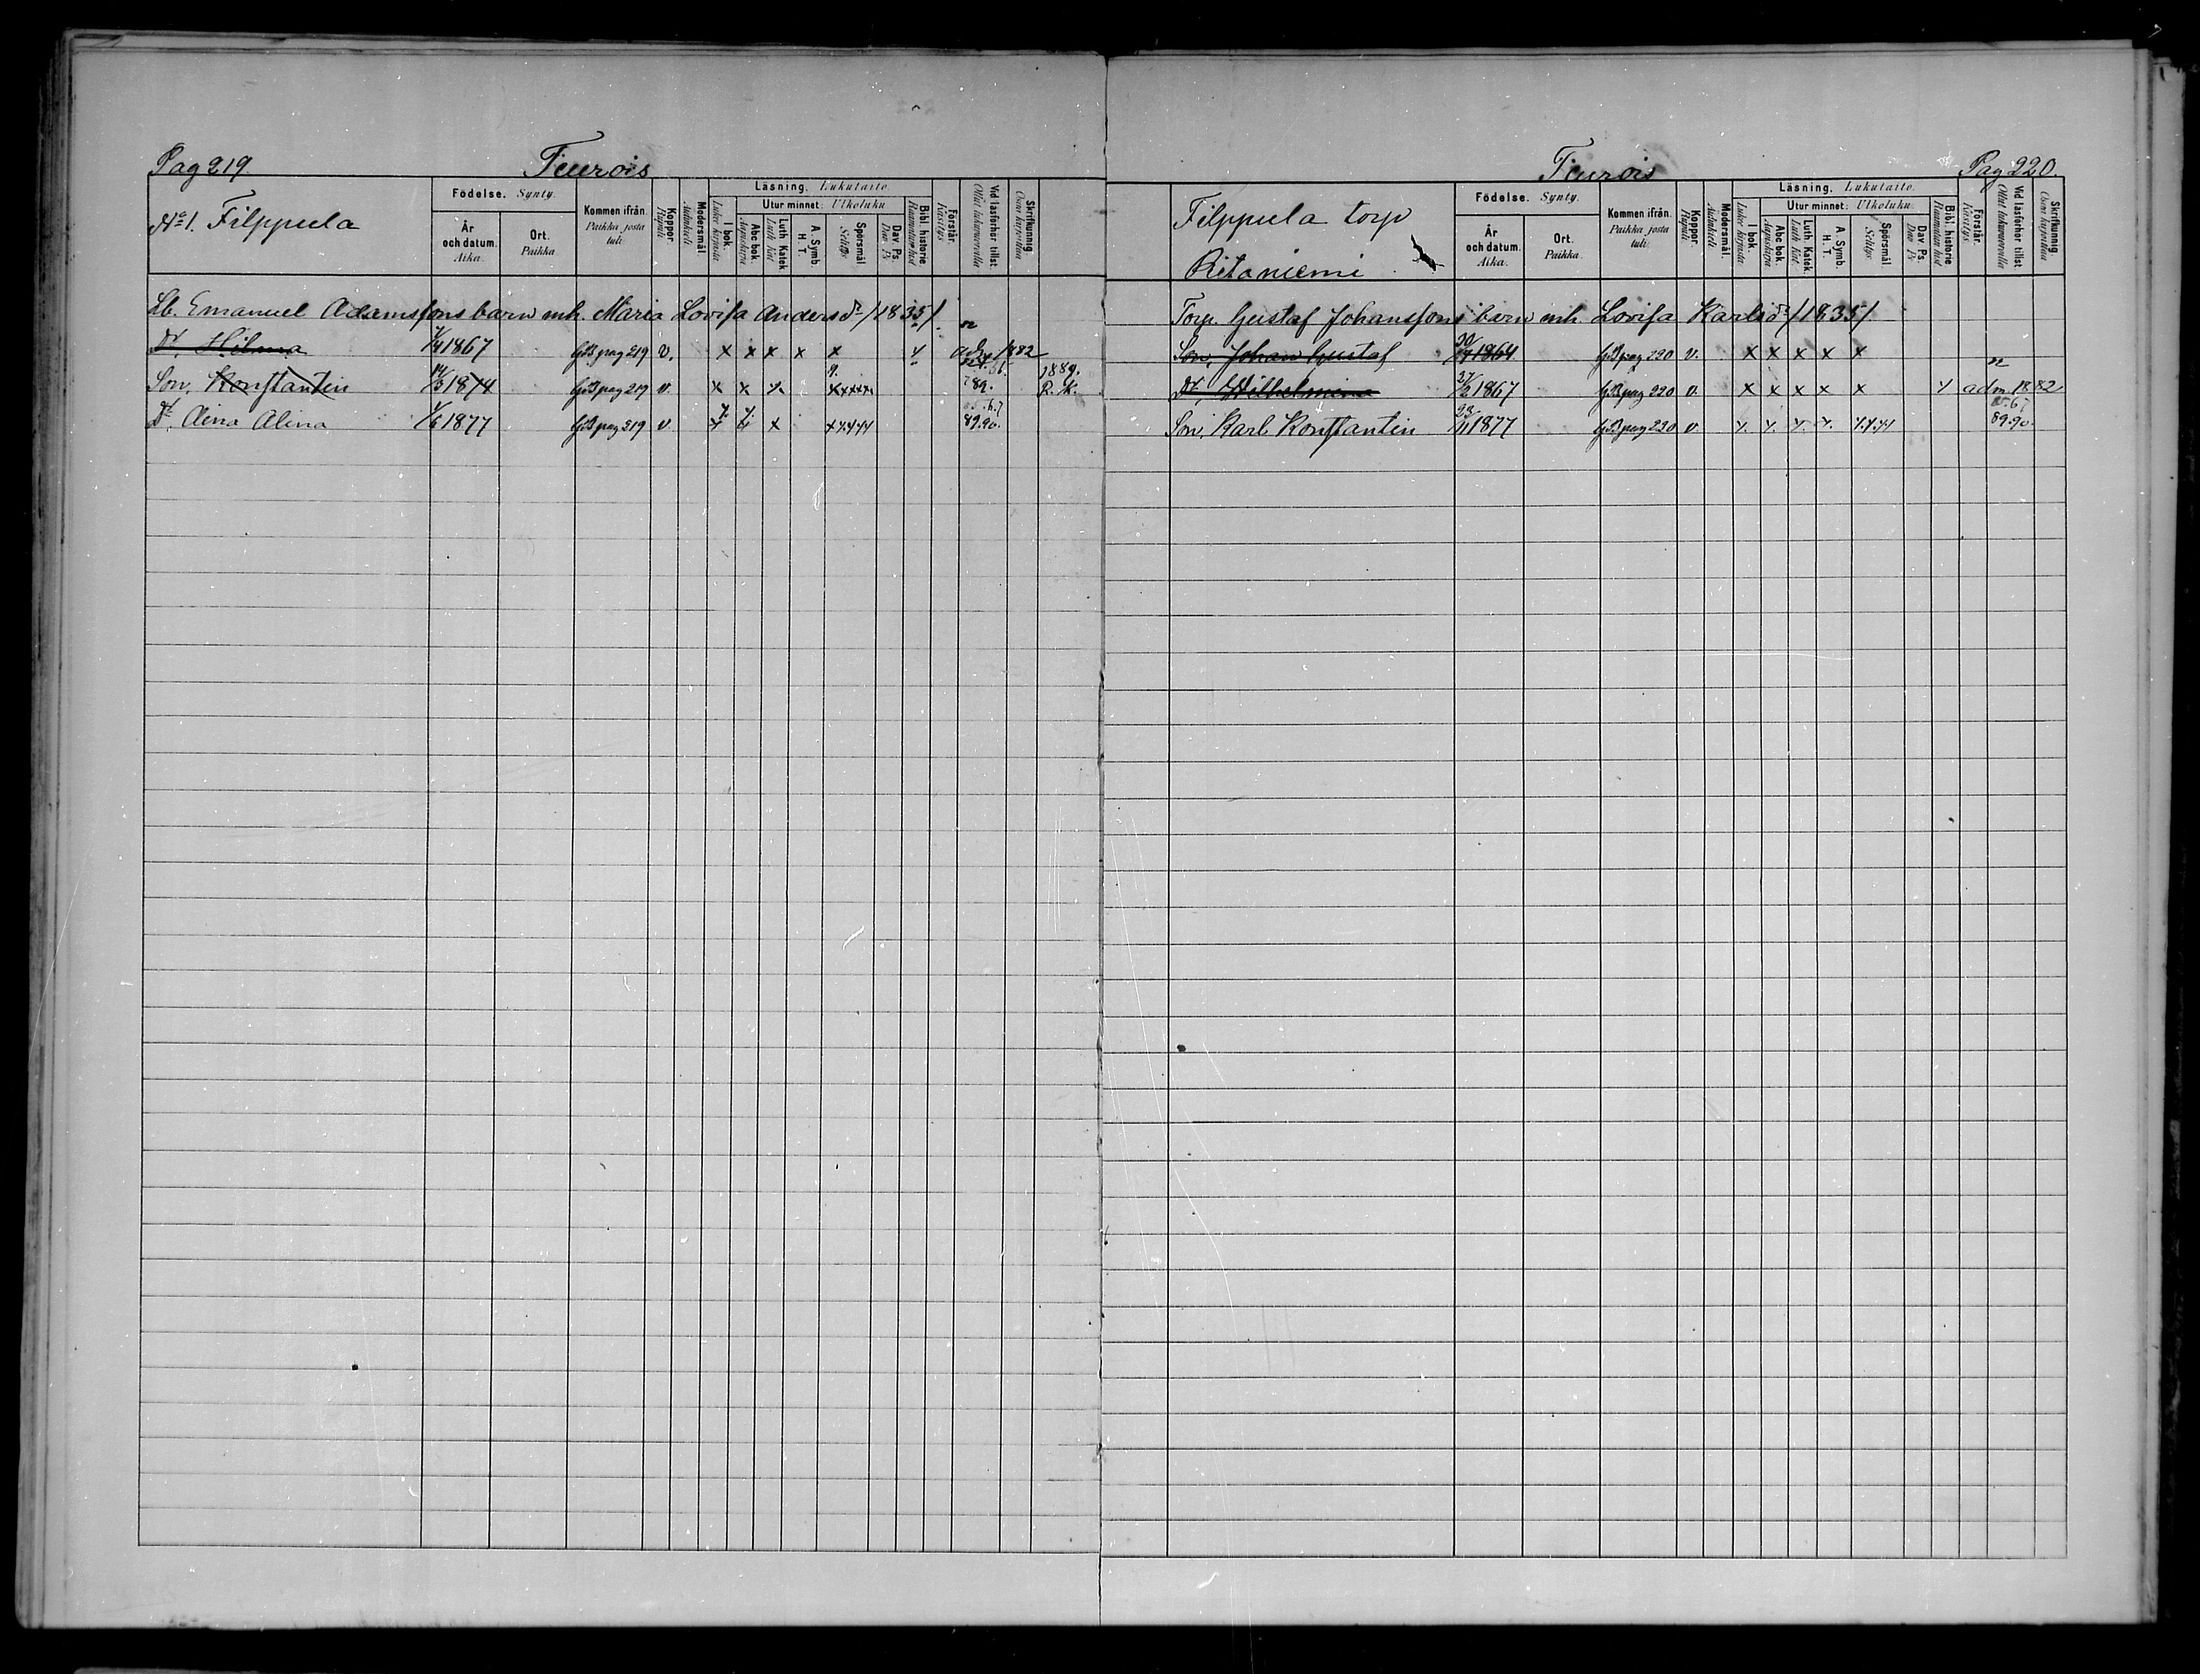 Pag 219. Tiurois
No 1. Filppula
Födelse. Synty.
År och datum. Aika.
Ort. Paikka
Kommen ifrån. Paikka josta tuli.
Koppor. Rupuli
Modersmål. Äidinkieli
Läsning. Lukutaito.
I bok. Lukee kirjasta
Utur minnet: Ulkoluku
Abc bok. Aapiskirja
Luth. Katek. Luth Kat.
A. Symb. H. T.
Spörsmål Selitys.
Dav. Ps. Dav. Ps
Bibl. historie Raamatun hist
Förstår. Käsitys
Vid läsförhör tillst. Ollut lukuvuorolla
Skrifkunnig. Osaa kirjoittaa
Lb. Emanuel Adamssons barn mh. Maria Lovisa Andersdr /1835/.
Dr. Hilma 1867 pag 219 v. x x x x x 1882
Son. Konstantin 14/3 1874 pag 219 v. x x x xxxxx 89. 1889. R. K.
Dr. Aina Alina 1/6 1877 pag 219 v x 89.90.
Tiurois Pag 220.
Filppula torp
Ritaniemi
Födelse. Synty.
År och datum. Aika.
Ort. Paikka.
Kommen ifrån. Paikka josta tuli.
Koppor. Rupuli
Modersmål. Äidinkieli
Läsning. Lukutaito.
I bok. Lukee kirjasta
Utur minnet: Ulkoluku.
Abc bok. Aapiskirja
Luth. Katek. Luth Kat.
A. Symb. H. T.
Spörsmål Selitys.
Dav. Ps. Dav. Ps
Bibl. historie Raamatun hist
Förstår. Käsitys
Vid läsförhör tillst. Ollut lukuvuorolla
Skrifkunnig. Osaa kirjoittaa
Torp. Gustaf Johanssons barn mh. Lovisa Karlsdr /1835/
Son, Johan Gustaf 1864 pag 220 v. x x x x x
Dr. Wilhelmina 27/2 1867 pag 220 v. x x x x x adm. 1882
Son, Karl Konstantin 1877 pag 220 v. 89.90.